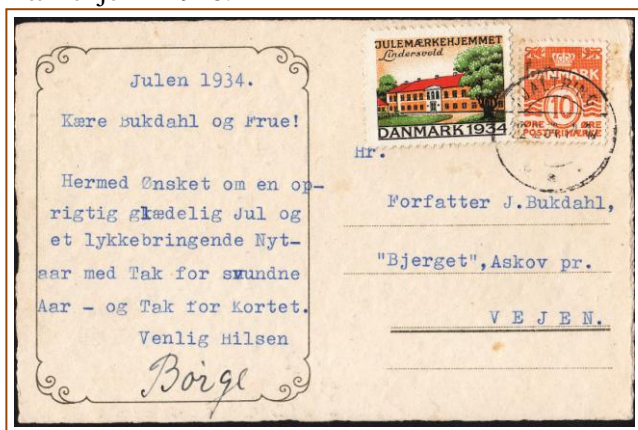 Julen 1934.
Kære Bukdahl og Frue!
Hermed Ønsket om en op-
rigtig glædelig Jul og
et lykkebringende Nyt-
aar med Tak for svundne
Aar - og Tak for Kortet.
Venlig Hilsen
Börge
JULEMÆRKEHJEMMET
Lindersvold
DANMARK 1934
DANMARK
10
ØRE ØRE
POSTFRIMÆRKE
Hr.
Forfatter J.Bukdahl,
"Bjerget", Askov pr.
VEJEN.